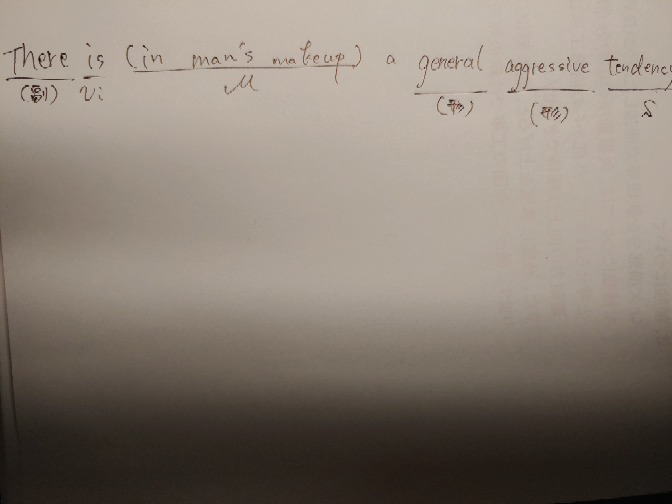 There is (in man's makeup) a general aggressive tendency
(副) Vi M (形) (形) S